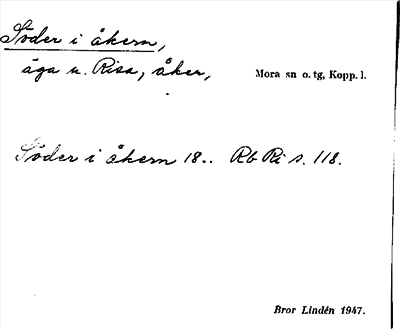 Söder i åkern,
äga u. Risa, åker, Mora sn o. tg, Kopp. l.
Söder i åkern 18.. Rb Ri s. 118.
Bror Lindén 1947.